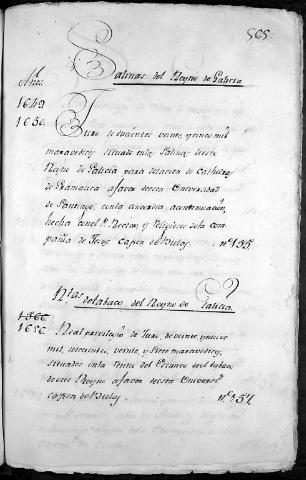 565.
Salinas del Reyno de Galicia
Años.
1649
1650.
Juro de ducientos veinte, y cinco mil
maravedis situado en las Salinas deeste
Reyno de Galicia para dotacion de Cathedra
de Gramatica a favor deesta Universidad
de Santiago, con la concordia a continuacion,
hecha con el Pe. Rector, y Religiosos de la Com
pañia de Jesus Cajon de Bulas. nº 155
Rtas. del tabaco del Reyno de Galicia.
1656. Real privilegio de Juro, de veinte, y nueve
mil, setecientos, veinte, y siete maravedis,
situados en la Renta del Estanco del tabaco
deeste Reyno a favor deesta Universd.
cajon de Bulas. nº 157.